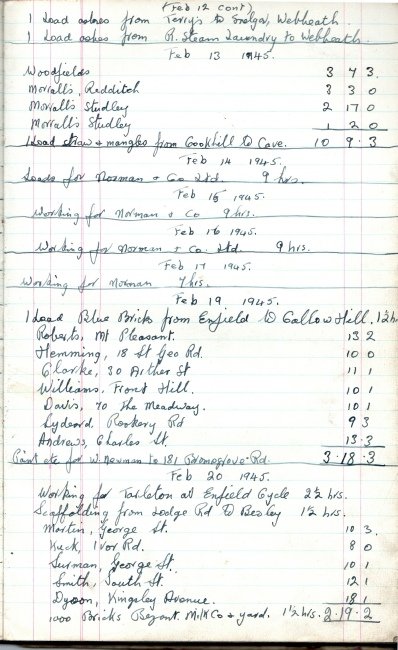 (Feb 12 cont)
1 Load ashes from Terry's to Webheath.
1 Load ashes from R. Steam Laundry to Webheath.
Feb 13 1945.
Woodfields 3 7 3.
Morralls, Redditch 3 3 0
Morralls Studley 2 17 0
Morralls Studley 1 2 0
1 Load straw & mangles from Cookhill to Cave. 10 9.3
Feb 14 1945.
Loads for Norman & Co Ltd. 9 hrs.
Feb 15 1945.
Working for Norman & Co 9 hrs.
Feb 16 1945.
Working for Norman & Co. Ltd. 9 hrs.
Feb 17 1945.
Working for Norman 7 hrs.
Feb 19. 1945.
1 Load Blue Bricks from Enfield to Gallow Hill. 1½ h
Roberts, Mt Pleasant. 13 2
Hemming, 18 St Geo Rd. 10 0
Clarke, 30 Arther St 11 1
Williams. Front Hill. 10 1
Davis, 70 The Meadway. 10 1
Lydeard, Rookery Rd 9 3
Andrews, Charles St. 13.3
Paint etc for W. Newman to 181 Bromsgrove Rd. 3.18.3
Feb 20 1945.
Working for Tarleton at Enfield Cycle 2½ hrs.
Scaffolding from Lodge Rd to Beoley 1½ hrs.
Martin, George St. 10 3.
Huck, Ivor Rd. 8 0
Surman, George St. 10 1
Smith, South St. 12 1
Dyson, Kingsley Avenue. 18 1
1000 Bricks Bryant. Milk Co & yard. 1½ hrs. 2.19.2